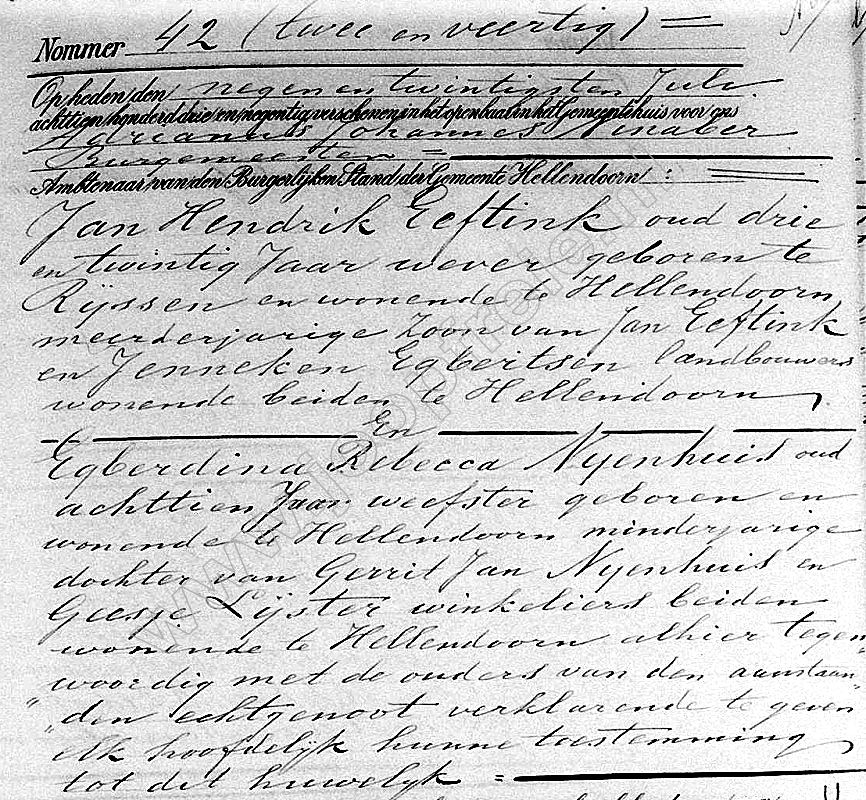 Nommer 42 (twee en veertig) =
Op heden den negen en twintigsten Juli
achttien honderd drie en negentig verschenen in het openbaar in het Gemeentehuis voor ons
Adrianus Johannes Minaber
Burgemeester =
Ambtenaar van den Burgerlijken Stand der Gemeente Hellendoorn :
Jan Hendrik Eeftink oud drie
en twintig Jaar wever geboren te
Rijssen en wonende te Hellendoorn
meerderjarige zoon van Jan Eeftink
en Jenneken Egbertsen landbouwers
wonende beiden te Hellendoorn
En
Egberdina Rebecca Nyenhuis oud
achttien Jaar weefster geboren en
wonende te Hellendoorn minderjarige
dochter van Gerrit Jan Nyenhuis en
Geesje Lijster winkeliers beiden
wonende te Hellendoorn alhier tegen„
woordig met de ouders van den aanstaan„
„den echtgenoot verklarende te geven
elk hoofdelijk hunne toestemming
tot dit huwelijk =